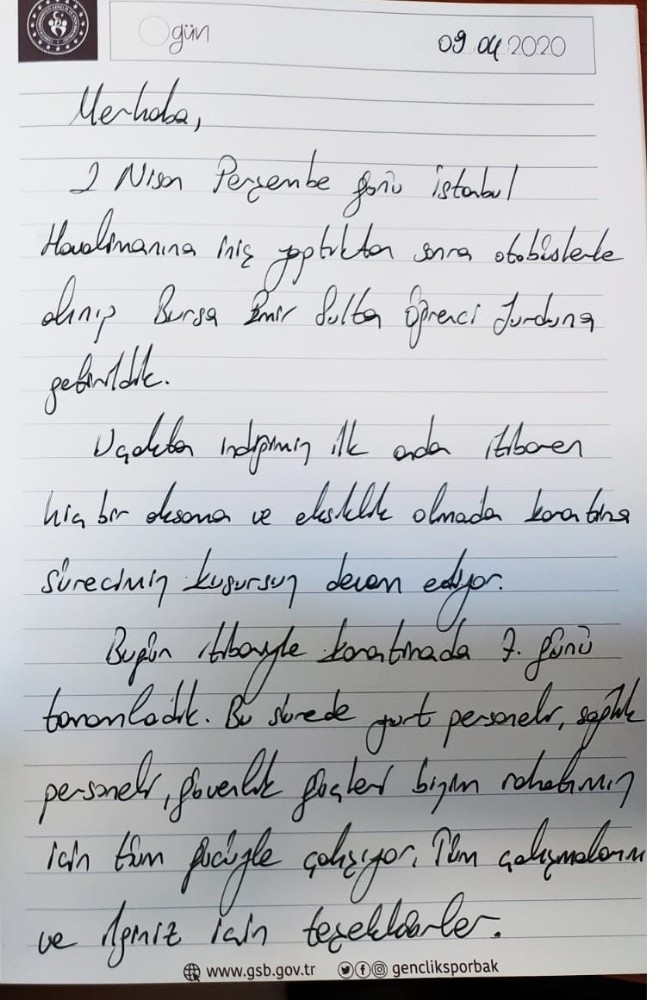 gün
09 04 2020
Merhaba,
2 Nisan Perşembe günü İstanbul
Havalimanına iniş yaptıktan sonra otobüslerle
alınıp Bursa Emir Sultan Öğrenci Yurduna
getirildik.
Uçaktan indiğimiz ilk andan itibaren
hiç bir aksama ve eksiklik olmadan karantina
sürecimiz kusursuz devam ediyor.
Bugün itibariyle karantinada 7. günü
tamamladık. Bu sürede yurt personeli, sağlık
personeli, güvenlik güçleri bizim rahatımız
için tüm gücüyle çalışıyor. Tüm çalışmalarınız
ve ilginiz için teşekkürler.
www.gsb.gov.tr gencliksporbak